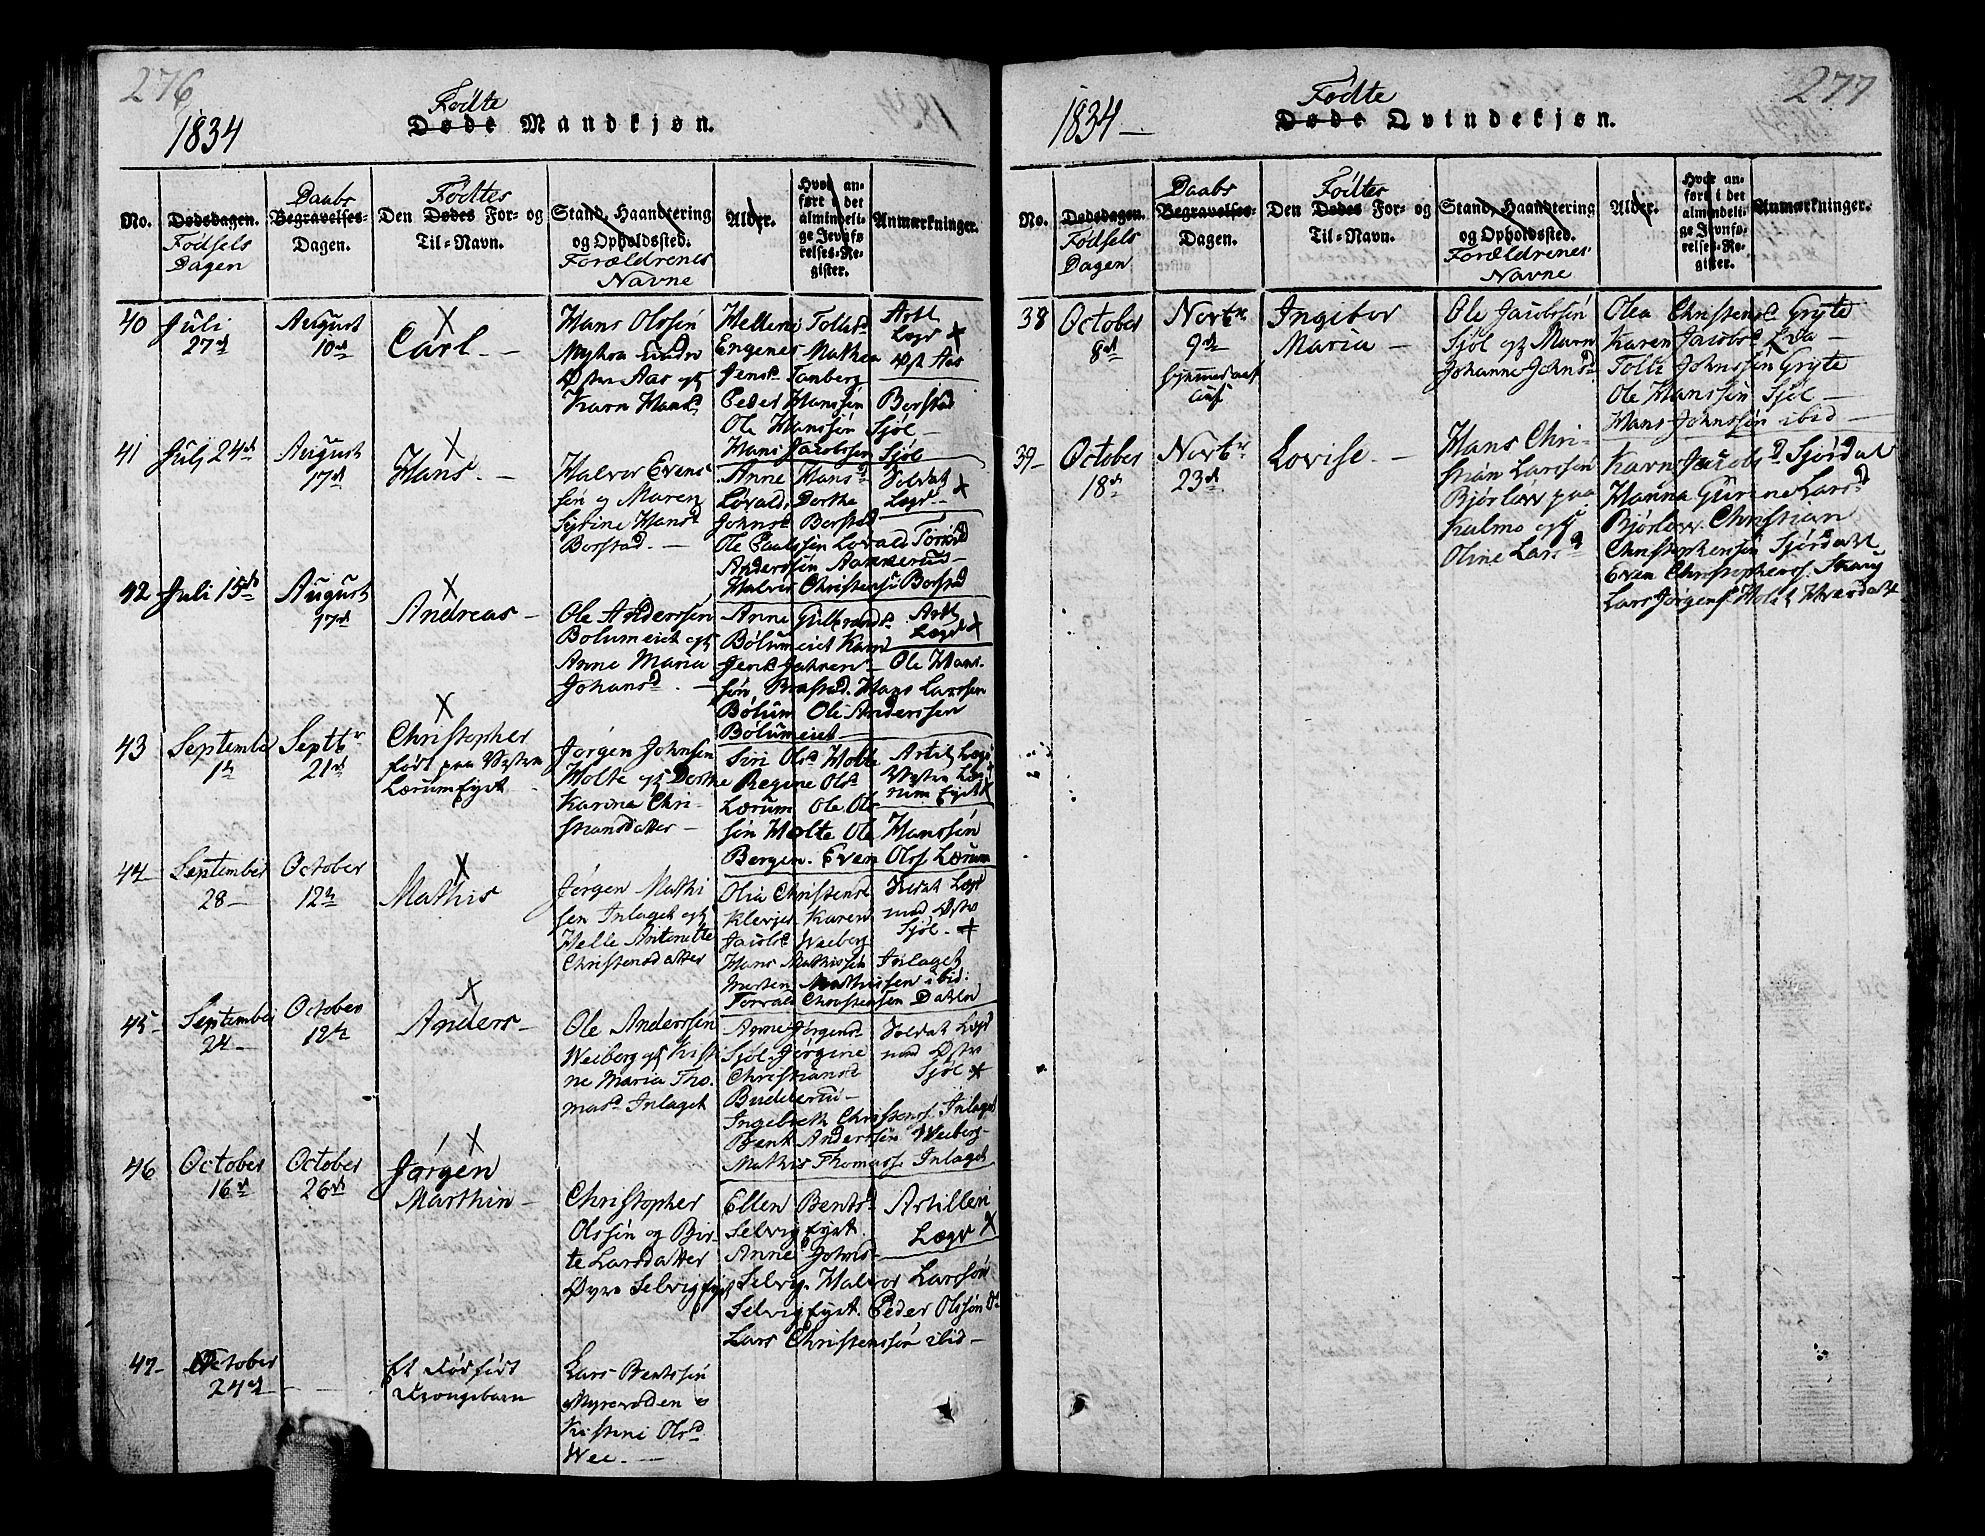 276
1834
Fødte
Døde Mandkjøn.
No.
Dødsdagen.
Fødsels
Dagen
Daabs
Begravelses-
Dagen.
Fødtes
Den Dødes For- og
Til-Navn.
Stand, Haandtering
og Opholdssted.
Forældrenes
Navne
Alder.
Hvor an-
ført i det
almindeli-
ge Jevnfø-
relses-Re-
gister.
Anmærkninger.
40
Juli
27d
August
10d
Carl. -
Hans Olssøn
Østre Aas og
Karn Hansd
Engenes Mathea
Jensd Tanberg
Peder Hanssøn Borstad
Ole Hanssøn Sjøl -
Hans Jacobssøn Sjøl
Artl
Lægd
Vst Aas
41
Julj 24d
August
17d
Hans. -
Halvor Evens
søn og Maren
Sybine Hansd
Borstad. -
Anne Hansd
Lovald, Dorthe
Johnsd Borstad
Ole Paulssøn Lovald
Anderssøn Aamerud
Halvor Christenss Borstad
Soldat
Lægd
42
Juli 15d
August
17d
Andreas -
Ole Anderssøn
Bølumeiet og
Anne Maria
Johansd. -
Anne Gulbrandsd
Bølumeiet Karn
Jensd Jahren - Ole Hans-
søn Borstad. Hans Larssøn
Bølum Ole Anderssøn
Bølumeiet -
Artl
Lægd
43
September
1d
Septbr
21d
Christopher
født paa Vestre
Lærumejet
Jørgen Johnsen
Holte og Dorthe
Karine Chri-
stiansdatter -
Siri Olsd Holte
Regine Olsd
Lærum Ole Ols-
søn Holte Ole Hanssøn
Bergen. Even Olss Lærum
Artil Lægd
Vestre Læ
rum Ejet
44 -
September
28 -
October
12te
Mathis
Jørgen Mathi
sen Inlaget og
Helle Antonette
Christensdatter
Olia Christensd
Klevjer Karen
Jacobsd Weiberg
Hans Mathissen Inlaget
Morten Mathissen ibid:
Torvald Christensen Dahlen
Soldat Lægd
med Østre
Sjøl -
45 -
September
24 -
October
12te
Anders -
Ole Anderssøn
Weiberg og Kisti
ne Maria Tho-
masd Inlaget
Anne Jørgensd
Sjøl. Jørgine
Christiansd
Budderud -
Ingebreth Christenss. Inlaget
Bent Anderssøn Weiberg -
Mathis Thomass. Inlaget
Soldat Lægd
med Østre
Sjøl
46
October
16d
October
26d
Jørgen
Marthin -
Christopher
Olssøn og Bir-
te Larsdatter
Øvre Selvigejet
Ellen Bentsd
Selvigejet.
Anne Johnsd
Selvig. Halvor Larssøn
Selvigejet. Peder Olssøn
Lars Christenssøn ibid -
Artilleri
Lægd
47 -
October
24d
Et dødfødt
Drengebarn
Lars Bentssøn
Myrerødden og
Kistine Olsd
Wee. -
277
1834 -
Fødte
Døde Qvindekjøn.
No.
Dødsdagen.
Fødsels
Dagen
Daabs
Begravelses-
Dagen.
Fødtes
Den Dødes For- og
Til-Navn.
Stand, Haandtering
og Opholdssted.
Forældrenes
Navne
Alder.
Hvor an-
ført i det
almindeli-
ge Jevnfø-
relses-Re-
gister.
Anmærkninger.
38
October
8d
Novbr
9d
hjemmedøbt
Ingebor
Maria -
Ole Jacobssøn
Sjøl og Marn
Johanne Johnsd
Olea Christensd Gryte
Karen Jacobsd Eda -
Tolle Johnssøn Gryte
Ole Hanssøn Sjøl -
Hans Johnssøn ibid -
39 -
October
18d
Novbr
23d
Lovise. -
Hans Chri-
stian Larssøn
Bjørløv paa
Kulmo og
Oline Larsd
Karn Jacobsd Sjørdal
Hanna Gurine Larsd
Bjørløv. Christian
Christophersøn Sjørdahl
Even Christopherss. Skaug
Lars Jørgenss Holst Hvesdahl